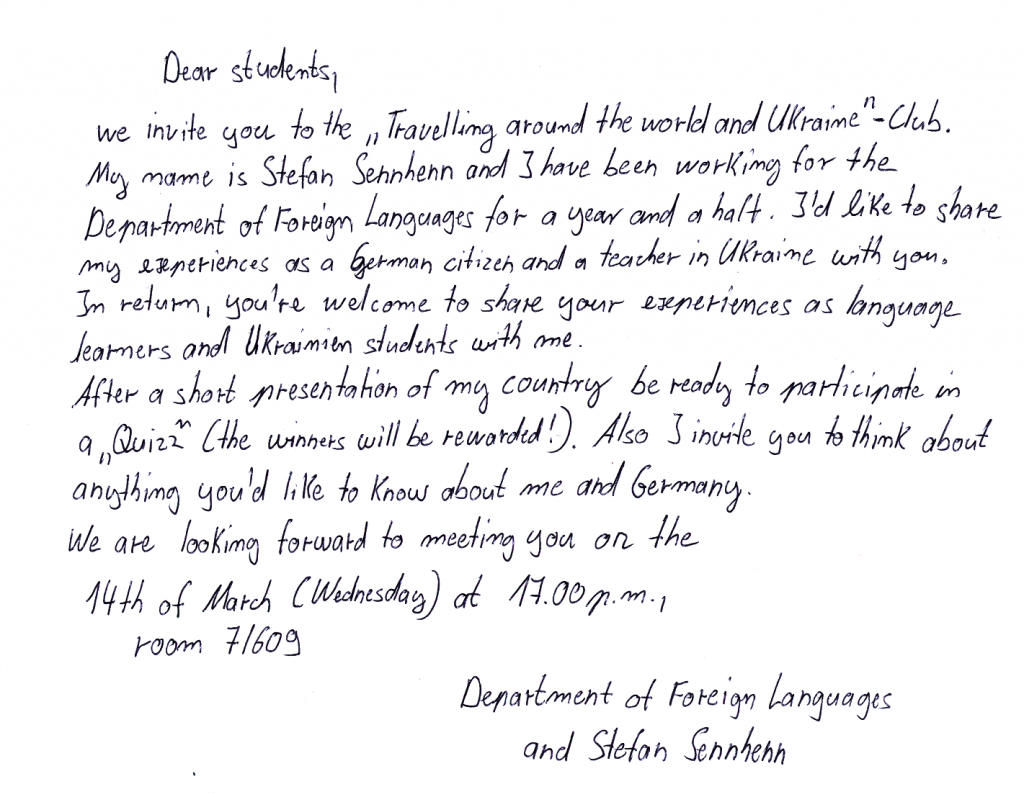 Dear students,
we invite you to the „Travelling around the world and Ukraine"-Club.
My name is Stefan Sennhenn and I have been working for the
Department of Foreign Languages for a year and a half. I'd like to share
my experiences as a German citizen and a teacher in Ukraine with you.
In return, you're welcome to share your experiences as language
learners and Ukrainien students with me.
After a short presentation of my country be ready to participate in
a „Quizz" (the winners will be rewarded!). Also I invite you to think about
anything you'd like to know about me and Germany.
We are looking forward to meeting you on the
14th of March (Wednesday) at 17.00 p.m.,
room 7/609
Department of Foreign Languages
and Stefan Sennhenn